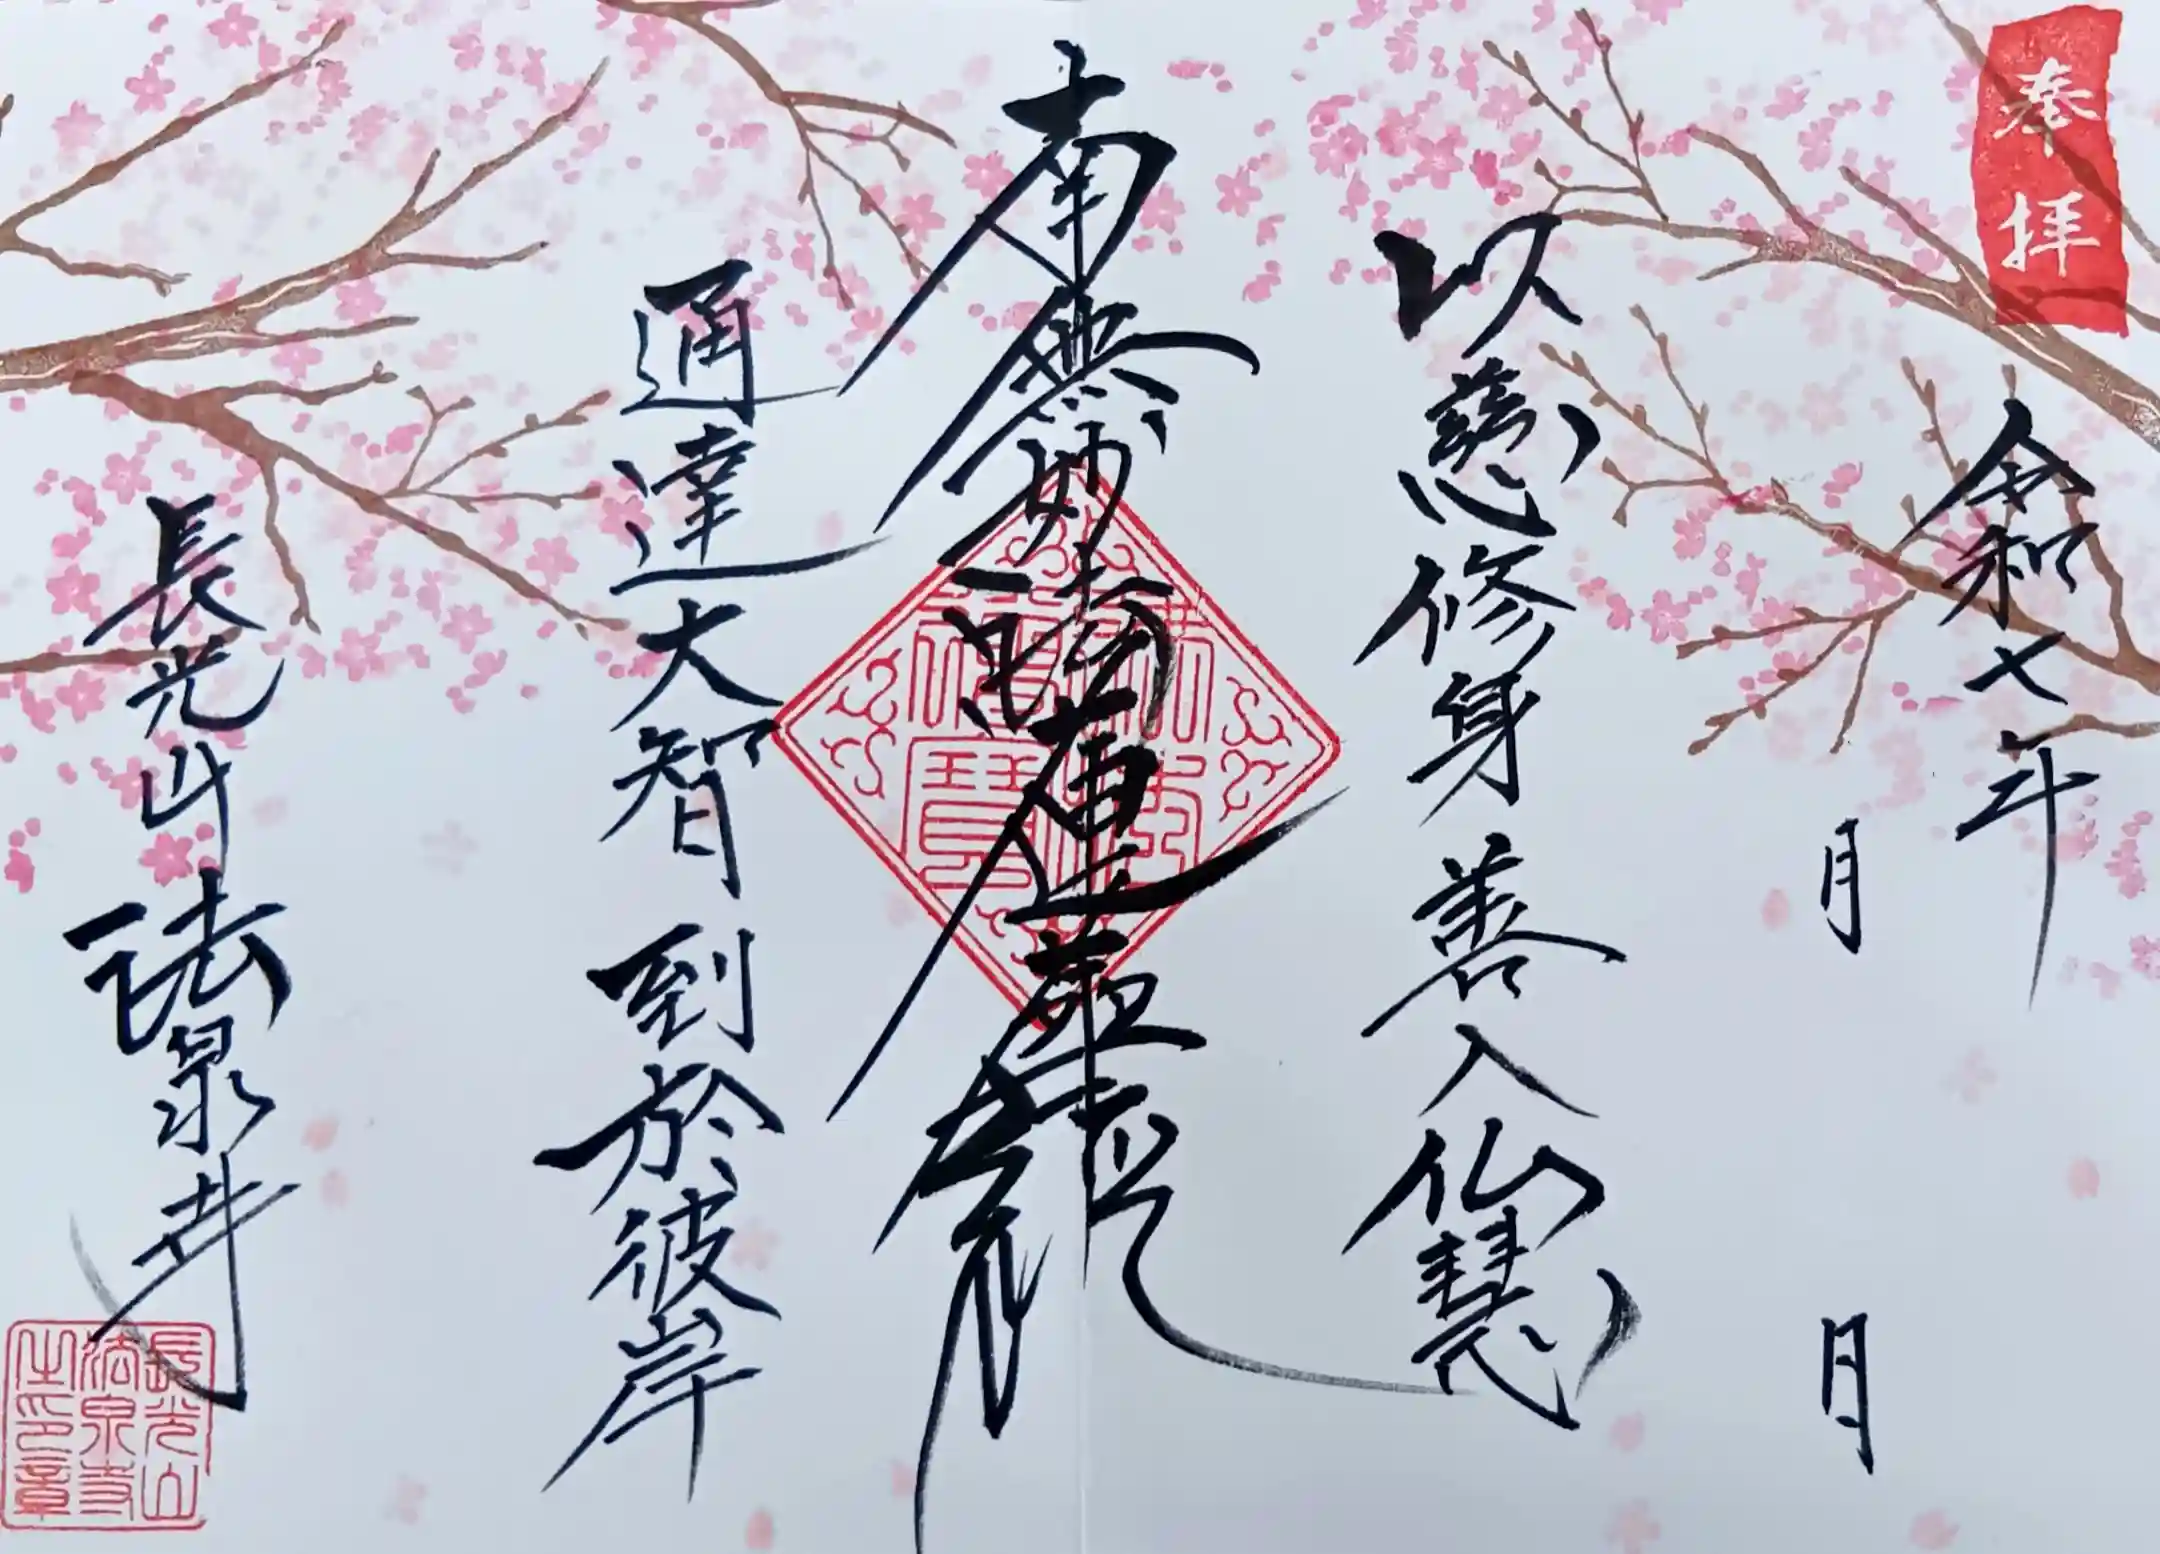 奉拝
令和七年
月 日
以慈修身善入仏慧
南無妙法蓮華経
佛法
僧寶
通達大智到於彼岸
長光山法泉寺
長光山
法泉寺
之印章